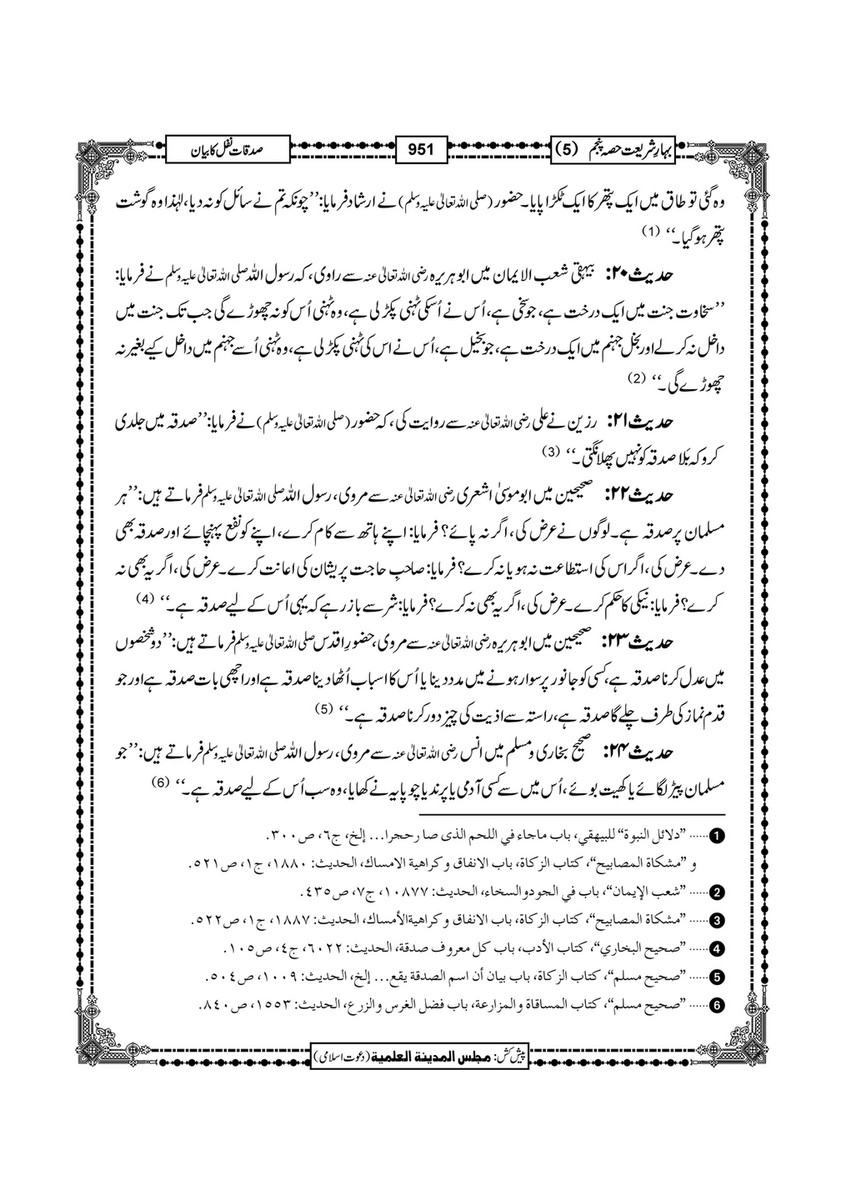 بہارِ شریعت حصہ پنجم (5)
951
صدقات نفل کا بیان
وہ گئی تو طاق میں ایک پتھر کا ایک ٹکڑا پایا۔ حضور (صلی اللہ تعالیٰ علیہ وسلم) نے ارشاد فرمایا: ’’چونکہ تم نے سائل کو نہ دیا، لہٰذا وہ گوشت
پتھر ہوگیا۔‘‘ (1)
حدیث ۲۰: بیہقی شعب الایمان میں ابوہریرہ رضی اللہ تعالیٰ عنہ سے راوی، کہ رسول اللہ صلی اللہ تعالیٰ علیہ وسلم نے فرمایا:
’’سخاوت جنت میں ایک درخت ہے، جو سخی ہے، اُس نے اُسکی ٹہنی پکڑ لی ہے، وہ ٹہنی اُس کو نہ چھوڑے گی جب تک جنت میں
داخل نہ کرلے اور بخل جہنم میں ایک درخت ہے، جو بخیل ہے، اُس نے اس کی ٹہنی پکڑ لی ہے، وہ ٹہنی اُسے جہنم میں داخل کیے بغیر نہ
چھوڑے گی۔‘‘ (2)
حدیث ۲۱: رزین نے علی رضی اللہ تعالیٰ عنہ سے روایت کی، کہ حضور (صلی اللہ تعالیٰ علیہ وسلم) نے فرمایا: ’’صدقہ میں جلدی
کرو کہ بَلا صدقہ کو نہیں پھلانگتی۔‘‘ (3)
حدیث ۲۲: صحیحین میں ابوموسیٰ اشعری رضی اللہ تعالیٰ عنہ سے مروی، رسول اللہ صلی اللہ تعالیٰ علیہ وسلم فرماتے ہیں: ’’ہر
مسلمان پر صدقہ ہے۔ لوگوں نے عرض کی، اگر نہ پائے؟ فرمایا: اپنے ہاتھ سے کام کرے، اپنے کو نفع پہنچائے اور صدقہ بھی
دے۔ عرض کی، اگر اس کی استطاعت نہ ہو یا نہ کرے؟ فرمایا: صاحبِ حاجت پریشان کی اعانت کرے۔ عرض کی، اگر یہ بھی نہ
کرے؟ فرمایا: نیکی کا حکم کرے۔ عرض کی، اگر یہ بھی نہ کرے؟ فرمایا: شر سے باز رہے کہ یہی اُس کے لیے صدقہ ہے۔‘‘ (4)
حدیث ۲۳: صحیحین میں ابوہریرہ رضی اللہ تعالیٰ عنہ سے مروی، حضورِ اقدس صلی اللہ تعالیٰ علیہ وسلم فرماتے ہیں: ’’دو شخصوں
میں عدل کرنا صدقہ ہے، کسی کو جانور پر سوار ہونے میں مدد دینا یا اُس کا اسباب اُٹھا دینا صدقہ ہے اور اچھی بات صدقہ ہے اور جو
قدم نماز کی طرف چلے گا صدقہ ہے، راستہ سے اذیت کی چیز دور کرنا صدقہ ہے۔‘‘ (5)
حدیث ۲۴: صحیح بخاری و مسلم میں انس رضی اللہ تعالیٰ عنہ سے مروی، رسول اللہ صلی اللہ تعالیٰ علیہ وسلم فرماتے ہیں: ’’جو
مسلمان پیڑ لگائے یا کھیت بوئے، اُس میں سے کسی آدمی یا پرند یا چوپایہ نے کھایا، وہ سب اُس کے لیے صدقہ ہے۔‘‘ (6)
1 ...... ”دلائل النبوة“ للبيهقي، باب ماجاء في اللحم الذى صا رحجرا... إلخ، ج٦، ص٣٠٠.
و ”مشكاة المصابيح“، كتاب الزكاة، باب الانفاق و كراهية الامساك، الحديث: ١٨٨٠، ج١، ص٥٢١.
2 ...... ”شعب الإيمان“، باب في الجودوالسخاء، الحديث: ١٠٨٧٧، ج٧، ص٤٣٥.
3 ...... ”مشكاة المصابيح“، كتاب الزكاة، باب الانفاق و كراهيةالأمساك، الحديث: ١٨٨٧، ج١، ص٥٢٢.
4 ...... ”صحيح البخاري“، كتاب الأدب، باب كل معروف صدقة، الحديث: ٦٠٢٢، ج٤، ص١٠٥.
5 ...... ”صحيح مسلم“، كتاب الزكاة، باب بيان أن اسم الصدقة يقع... إلخ، الحديث: ١٠٠٩، ص٥٠٤.
6 ...... ”صحيح مسلم“، كتاب المساقاة والمزارعة، باب فضل الغرس والزرع، الحديث: ١٥٥٣، ص٨٤٠.
پیش کش: مجلس المدینة العلمیة (دعوت اسلامی)